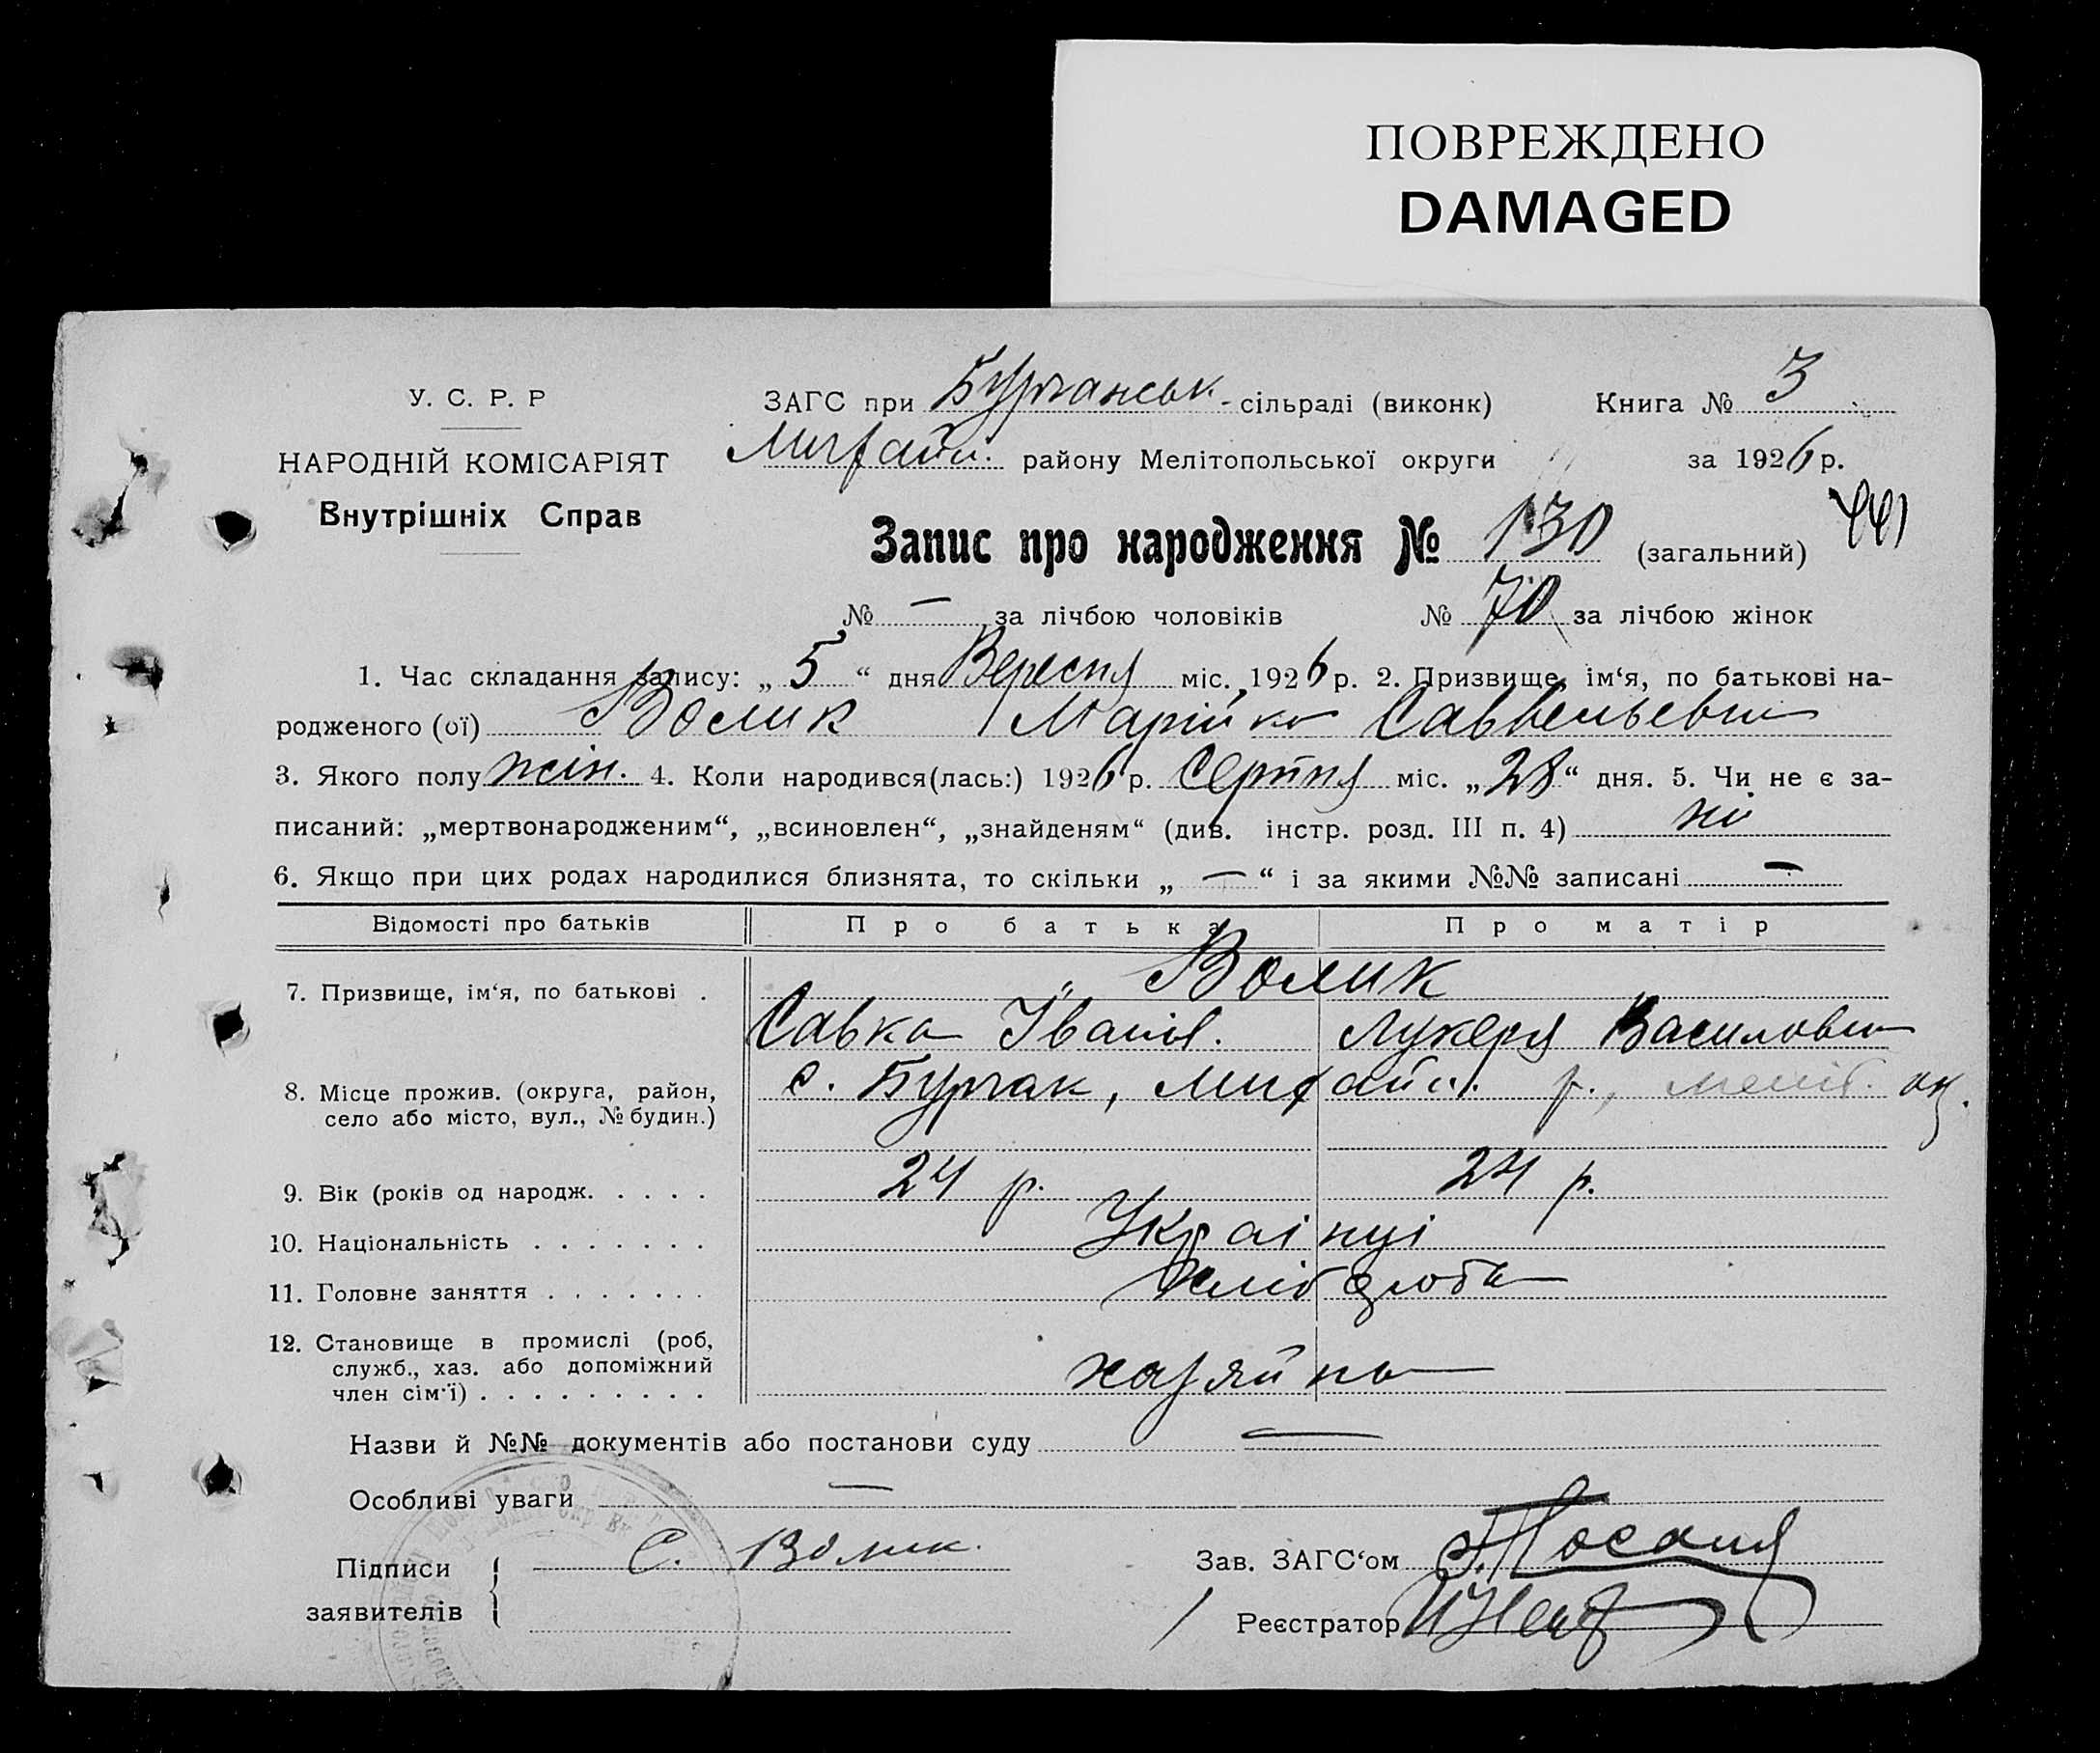 ПОВРЕЖДЕНО
DAMAGED
У. С. Р. Р
НАРОДНІЙ КОМІСАРІЯТ
Внутрішніх Справ
ЗАГС при Бурчанськ. сільраді (виконк)
Мих айл. району Мелітопольської округи
Книга № 3
за 1926 р.
Запис про народження № 130 (загальний) 441
№ — за лічбою чоловіків № 70 за лічбою жінок
1. Час складання запису: „ 5 “ дня Вересня міс. 1926 р. 2. Призвище, ім‘я, по батькові на-
родженого (ої) Волик Марійка Саввельевна
3. Якого полу жін. 4. Коли народився(лась:) 1926 р. Серпня міс. „28“ дня. 5. Чи не є за-
писаний: „мертвонародженим“, „всиновлен“, „знайденям“ (див. інстр. розд. III п. 4) ні
6. Якщо при цих родах народилися близнята, то скільки „ — “ і за якими №№ записані —
Відомості про батьків Про батька Про матір
7. Призвище, ім‘я, по батькові . Волик
Савка Іванов. Лукеря Василовна
8. Місце прожив. (округа, район, с. Бурчак, Михайл. р., меліт. ок.
село або місто, вул., № будин.)
9. Вік (років од народж. . . . . 24 р. 24 р.
10. Національність . . . . . . . Украінці
11. Головне заняття . . . . . . . хлібороба
12. Становище в промислі (роб,
служб., хаз. або допоміжний хазяйна
член сім‘ї) . . . . . . . . .
Назви й №№ документів або постанови суду —
Особливі уваги —
Підписи С. Волик.
заявителів
Зав. ЗАГС‘ом
Реєстратор